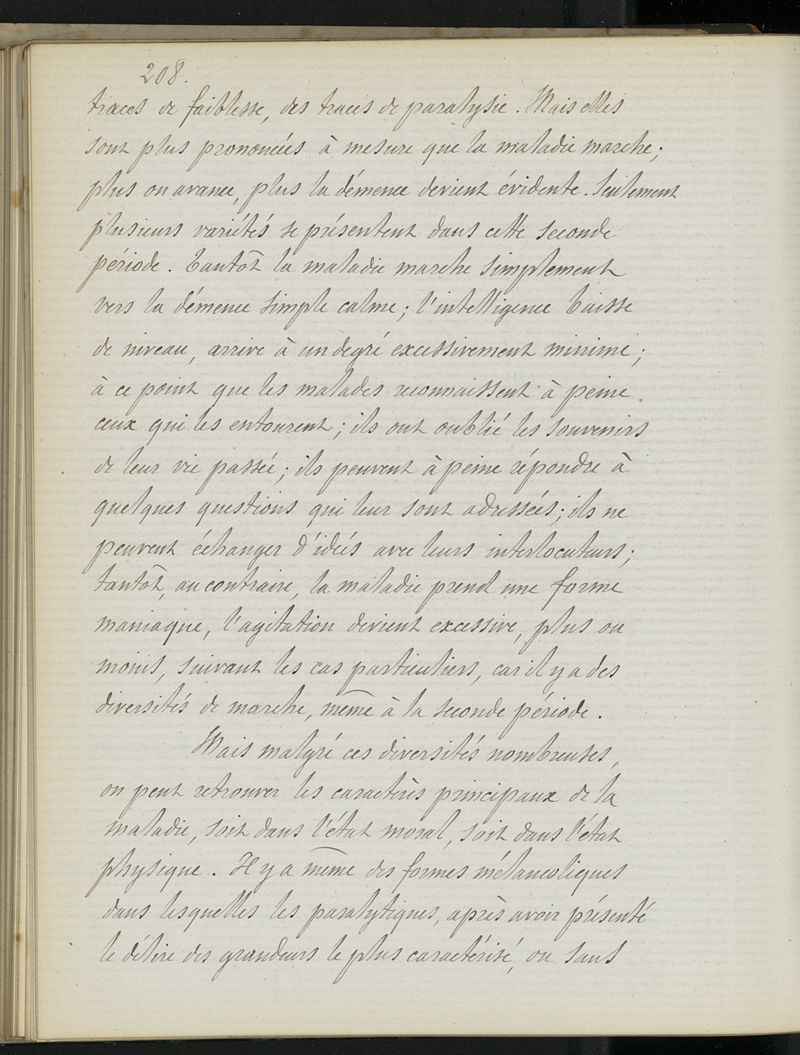 208.
traces de faiblesse, des traces de paralysie. Mais elles
sont plus prononcées à mesure que la maladie marche;
plus on avance, plus la démence devient évidente. Seulement
plusieurs variétés se présentent dans cette seconde
période. Tantôt la maladie marche simplement
vers la démence simple calme; l'intelligence baisse
de niveau, arrive à un degré excessivement minime;
à ce point que les malades reconnaissent à peine
ceux qui les entourent; ils ont oublié les souvenirs
de leur vie passée; ils peuvent à peine répondre à
quelques questions qui leur sont adressées; ils ne
peuvent échanger d'idées avec leurs interlocuteurs;
tantôt, au contraire, la maladie prend une forme
maniaque, l'agitation devient excessive, plus ou
moins, suivant les cas particuliers, car il y a des
diversités de marche, même à la seconde période.
Mais malgré ces diversités nombreuses,
on peut retrouver les caractères principaux de la
maladie, soit dans l'état moral, soit dans l'état
physique. Il y a même des formes mélancoliques
dans lesquelles les paralytiques, après avoir présenté
le délire des grandeurs le plus caractérisé, ou sans